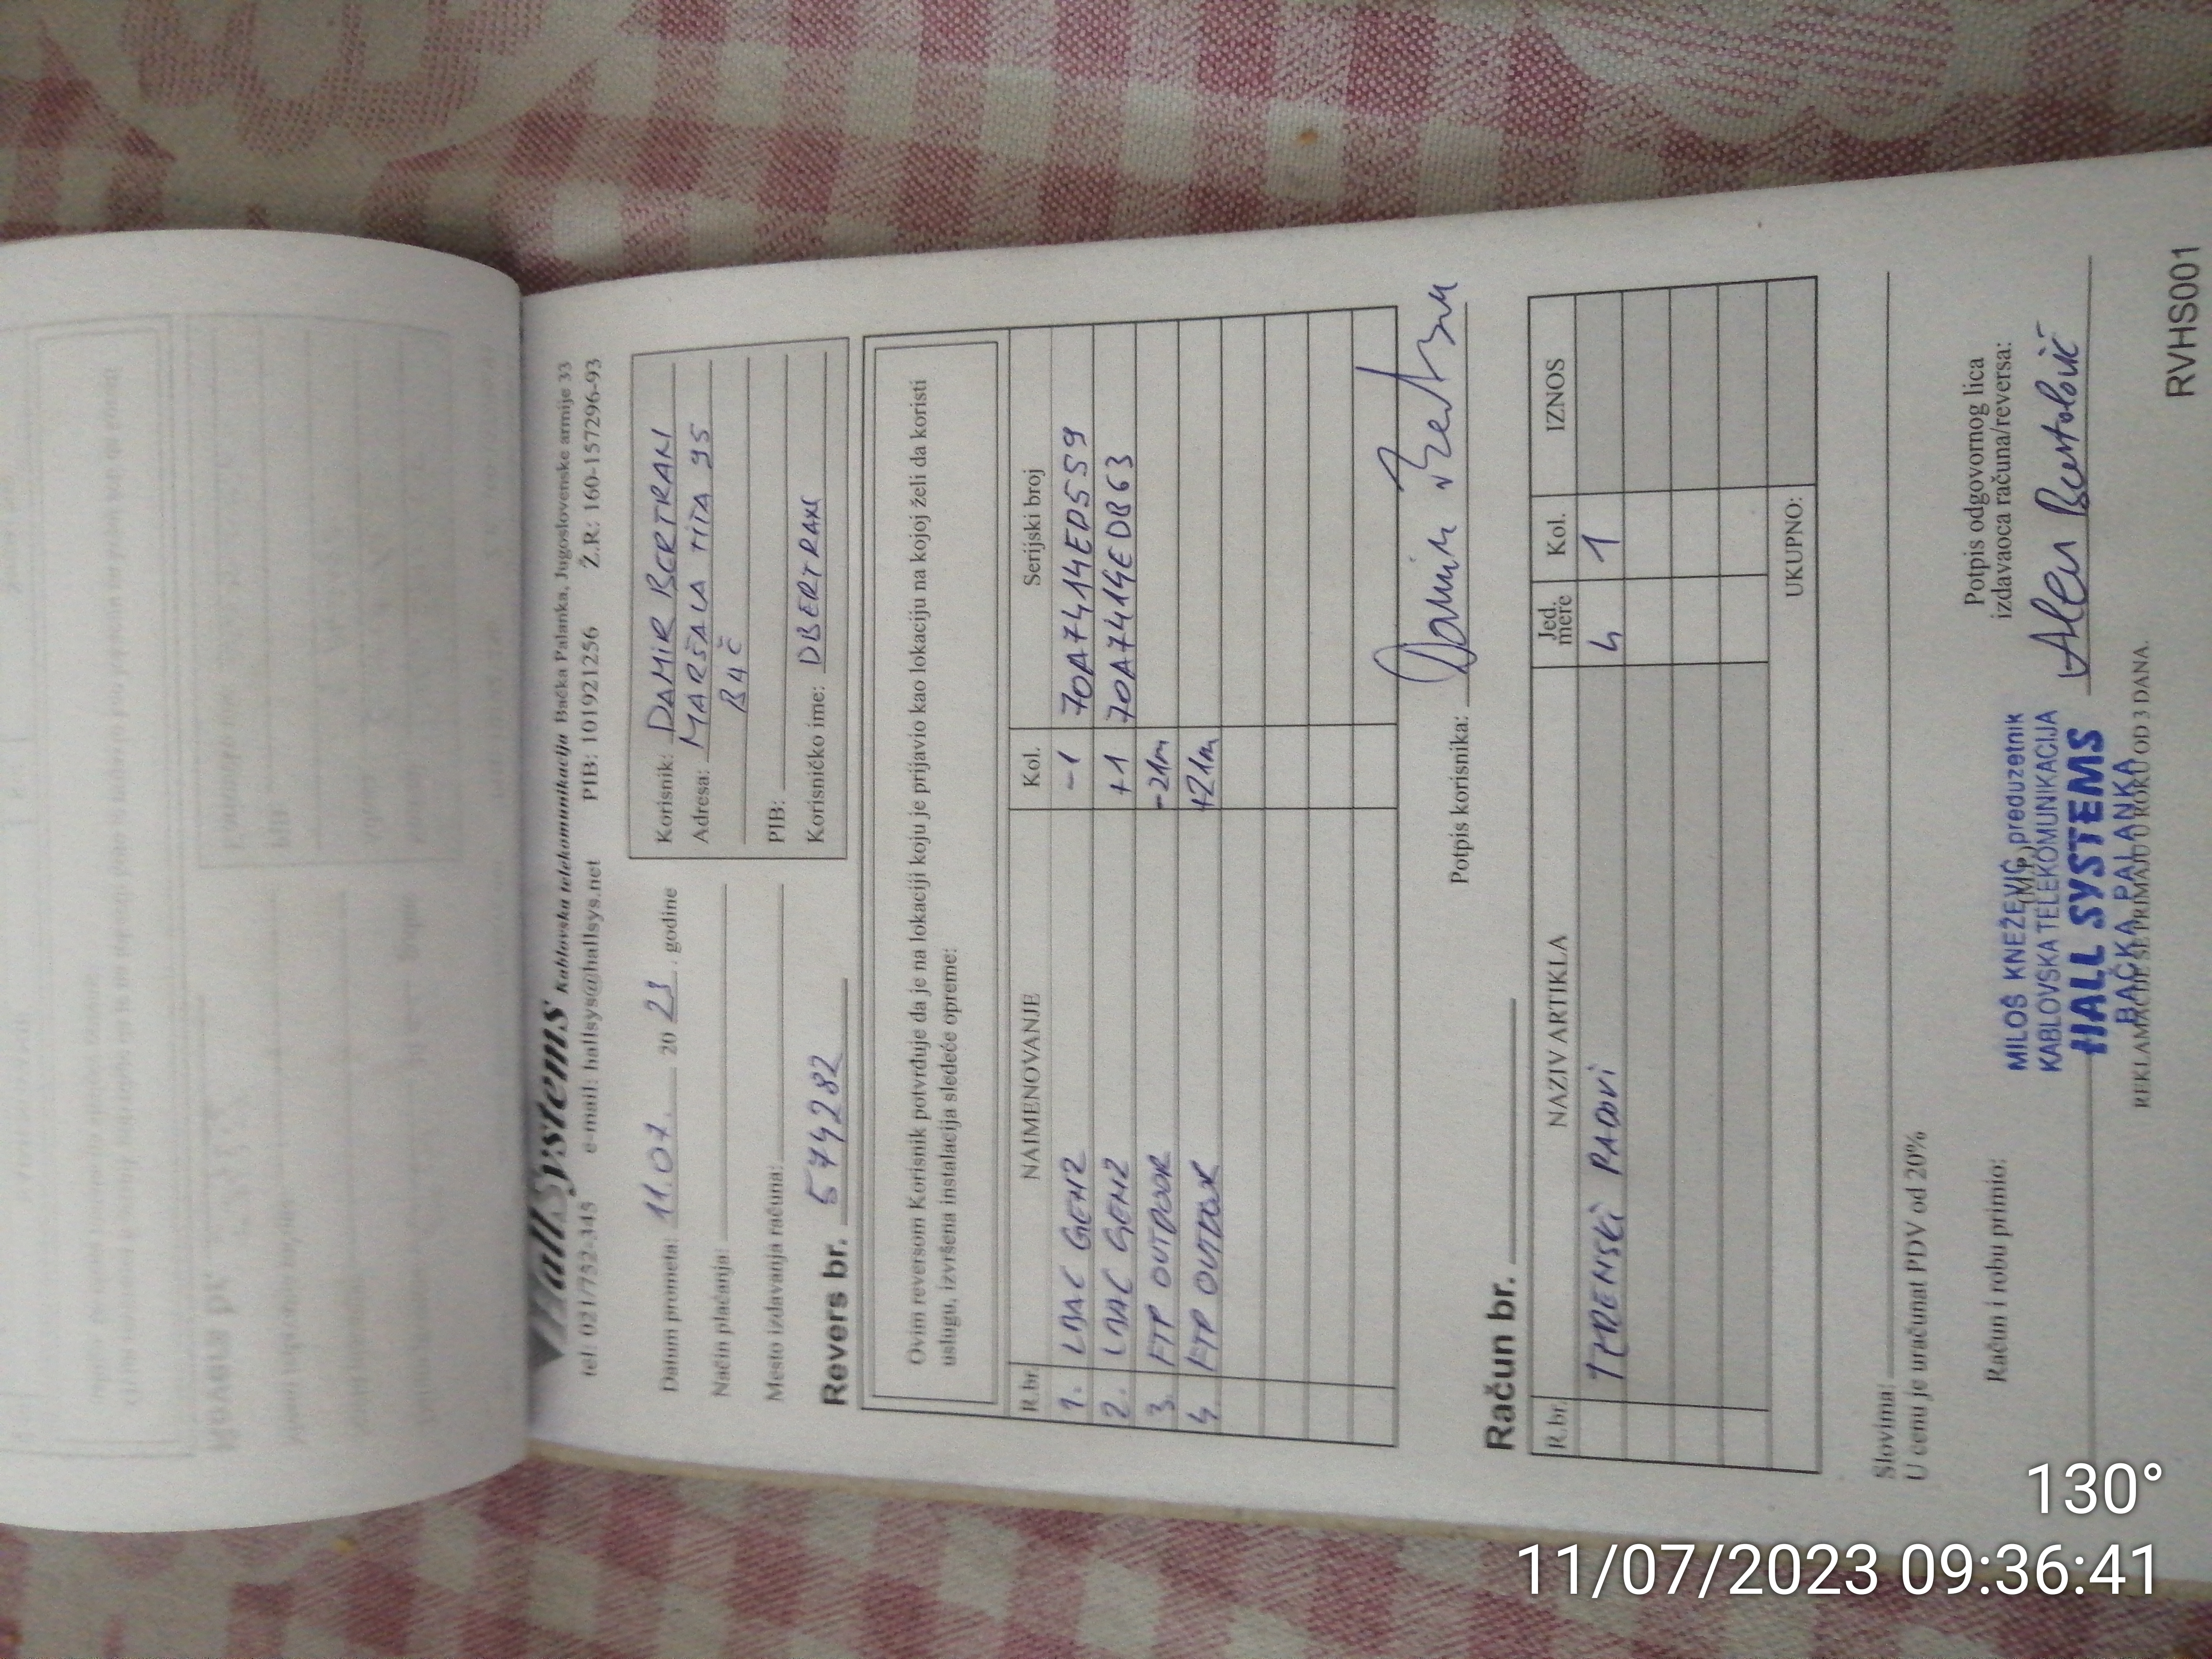 HallSystems Kablovska telekomunikacija Bačka Palanka, Jugoslovenske armije 33
tel: 021/752-345 e-mail: hallsys@hallsys.net PIB: 101921256 Ž.R: 160-157296-93
Datum prometa: 11.07. 2023. godine
Način plaćanja:
Mesto izdavanja računa:
Revers br. 574282
Korisnik: DAMIR BERTRAN
Adresa: MARŠALA TITA 95
BAČ
PIB:
Korisničko ime: DBERTRAN
Ovim reversom Korisnik potvrđuje da je na lokaciji koju je prijavio kao lokaciju na kojoj želi da koristi
uslugu, izvršena instalacija sledeće opreme:
R.br. NAIMENOVANJE Kol. Serijski broj
1. LBAC GEN2 -1 70A7414ED559
2. LBAC GEN2 +1 70A7414EDB63
3. FTP OUTDOOR -21m
4. FTP OUTDOR +21m
Potpis korisnika: Damir
Račun br.
R.br. NAZIV ARTIKLA Jed. mere Kol. IZNOS
TERENSKI RADOVI h 1
UKUPNO:
Slovima:
U cenu je uračunat PDV od 20%
Račun i robu primio:
(M.P.)
Potpis odgovornog lica
izdavaoca računa/reversa:
MILOŠ KNEŽEVIĆ preduzetnik
KABLOVSKA TELEKOMUNIKACIJA
HALL SYSTEMS
BAČKA PALANKA
Alen
REKLAMACIJE SE PRIMAJU U ROKU OD 3 DANA.
RVHS001
130°
11/07/2023 09:36:41